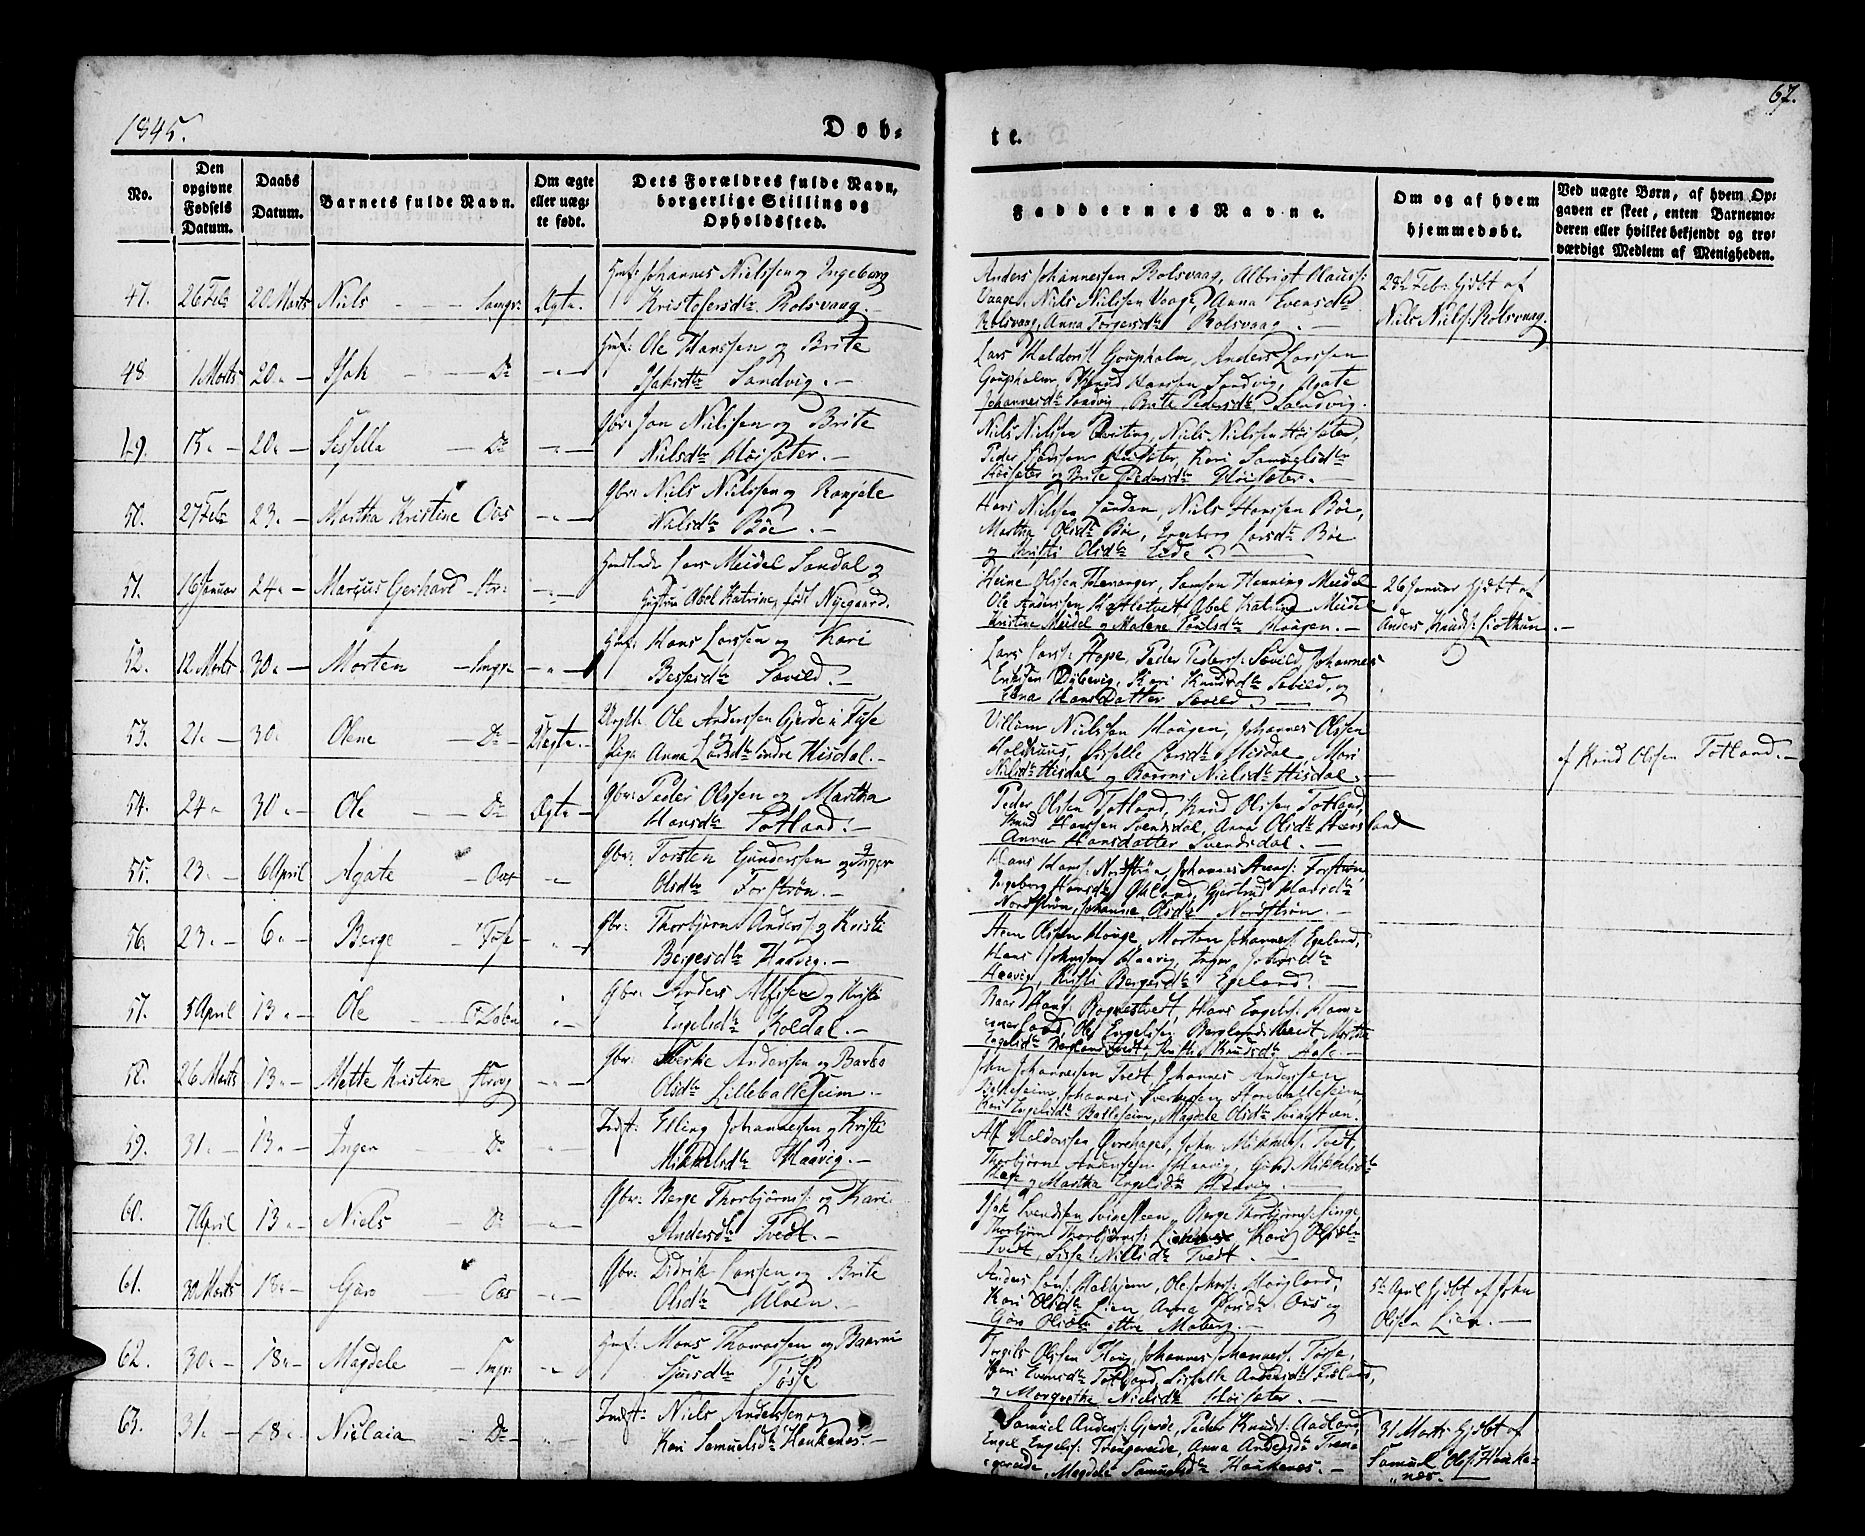 1845.
Døb-
te.
67.
No.
Den opgivne Fødsels Datum.
Daabs Datum.
Barnets fulde Navn.
Om ægte eller uæg-te født.
Dets Forældres fulde Navn, borgerlige Stilling og Opholdssted.
Faddernes Navne.
Om og af hvem hjemmedøbt.
Ved uægte Børn, af hvem Op-gaven er skeet, enten Barnemo-deren eller hvilket bekjendt og tro-værdigt Medlem af Menigheden.
47. 26 Feb 20 Marts Niels Samgr: Ægte.
Hmf: Johannes Nielssen og Ingeborg
Kristofersdtr Rolsvaag.
Anders Johannessen Rolsvaag, Albrigt Olauss:
Vaage, Niels Nielsen Vaage, Anna Evensdtr
Rolsvaag, Anna Torgersdtr Rolsvaag.
28de Feb: Hjdbt af
Niels Niels: Rolsvaag.
48. 1 Marts 20 " Isak Do "
Hmf: Ole Hanssen og Brite
Isaksdtr Sandvig.
Lars Haldors: Anders Larssen
Hanssen Sandvig, Agate
Johannesdtr Sandvig, Brite Pedersdtr Sandvig.
49. 15 " 20 " Sessella Do "
Gbr: Jon Nielssen og Brite
Nielsdtr Høisæter.
Niels Nielsen Røviting, Niels Nielsen Høisæter,
Peder Høisæter, Kari Samuelsdtr
Høisæter og Brite Pedersdtr Høisæter.
50. 27 Feb 23 " Martha Kristine Oos "
Gbr: Niels Nielssen og Ranjele
Nielsdtr Bøe.
Hans Nilsen Lunden, Niels Hanssen Bøe,
Martha Olsdtr Bøe, Ingeborg Larsdtr Bøe
og Kristi Olsdtr Lide.
51. 16 Januar 24 " Marcus Gerhard "
Lars Meidel Sandal og
Hustru Abel Katrine, født Nyegaard.
Heine Olssen Therranger, Samson Henning Meidel
Ole Anderssen Hatletvedt, Abel Katrine Meidel
Kristine Meidel og Malene Povlsdtr Hougen.
26 Januar Hjdbt af
Anders Knuds: Liothun.
52. 12 Marts 30 " Morten Samgr "
Hmf: Hans Larssen og Kari
Bessesdtr Sævild.
Lars Lars: Hope, Peder Peders: Sævild, Johannes
Eriksen Dybevig, Kari Knudsdtr Sævild, og
Hans Datter Sævild.
53. 21 " 30 " Olene Do Uægte.
Ungk: Ole Anderssen Gjerde i Fuse
Pige Anna Larsdtr indre Hisdal.
Villum Nielssen Hougen, Johannes Olssen
Holdhuus, Sisselle Larsdtr Hisdal, Mari
Nielsdtr Hisdal og Baroni Nielsdtr Hisdal.
af Knud Olssen Totland.
54. 24 " 30 " Ole Do Ægte
Gbr: Peder Olssen og Martha
Hansdtr Totland.
Peder Olssen Totland, Knud Olssen Totland,
Knud Hanssen Svendsdal, Anna Olsdtr
Anna Hansdatter Svendsdal.
55. 23 " 6 April Agate Oos "
Gbr: Torsten Gunderssen og Inger
Olsdtr Forstrøn.
Hans Hans: Nordstrøn, Johannes Forstrøn,
Ingeborg Hansdtr Gjertrud Hansdtr
Nordstrøn, Johanne Olsdtr Nordstrøn.
56. 23 " 6 " Berge Fuse "
Gbr: Thorbjørn Anders: og Kristi
Bergesdtr Haavig.
Olssen Houge, Morten Johannes: Egeland,
Hans Haavig, Inger Johnsdtr
Haavig, Kristi Bergesdtr Egeland.
57. 5 April 13 " Ole "
Gbr: Anders Alfssen og Kristi
Engelsdtr Koldal.
Baard Hans: Rognestvedt, Hans Engels: Ham-
merland, Ole Engelsen Berglandstveit, Martha
Engelsdtr Knudsdtr
58. 26 Marts 13 " Mette Kristine Strog "
Gbr: Anderssen og Barbo
Olsdtr Lilleballesiem.
John Johannessen Tvedt, Johannes Anderssen
Johannes Storeballesiem,
Kari Engelsdtr Ballesiem, Magdele Olsdtr
59. 31 " 13 " Inger Do "
Indst: Elling Johannessen og Kriste
Mikkelsdtr Haavig.
Alf Haldorssen Øvrehaget, John Mikkels: Tvedt,
Thorbjørn Anderssen Haavig, Mikkelsdtr
og Martha Engelsdtr Haavig.
60. 7 April 13 " Niels Do "
Gbr: Berge Thorbjørns: og Kari
Andersdtr Tvedt.
Isak Svendsen Berge Thorbjørns:
Thorbjørn Thorbjørns: Kari Olsdtr
Tvedt, Nilsdtr Tvedt.
61. 30 Marts 18 " Gøro Oos "
Gbr: Didrik Larssen og Brite
Olsdtr Ulven.
Anders Malkjem, Ole Moigland,
Kari Olsdtr Lien, Anna Oos og
Gøro Olsdtr ottre Moberg.
5te April Hjdbt af John
Olssen Lien.
62. 30 " 18 " Magdele Samgr: "
Hmf: Mons Thomassen og Baarni
Sjursdtr Tøsse
Engels Olssen Houg, Johannes Johannes: Tøsse,
Kari Evensdtr Totland, Sisselle Andersdtr
og Margrethe Nielsdtr Høisæter.
63. 31 " 18 " Nielaia Do "
Indst: Niels Anderssen og
Kari Samuelsdtr Haukenes.
Samuel Anders: Gjerde, Peder Knuds: Aadland,
Engel Engels: Trengereide, Anna Andersdtr Tren-
gereide, Magdele Samuelsdtr Haukenes.
31 Marts Hjdbt af
Samuel Ols: Hauke-
nes.